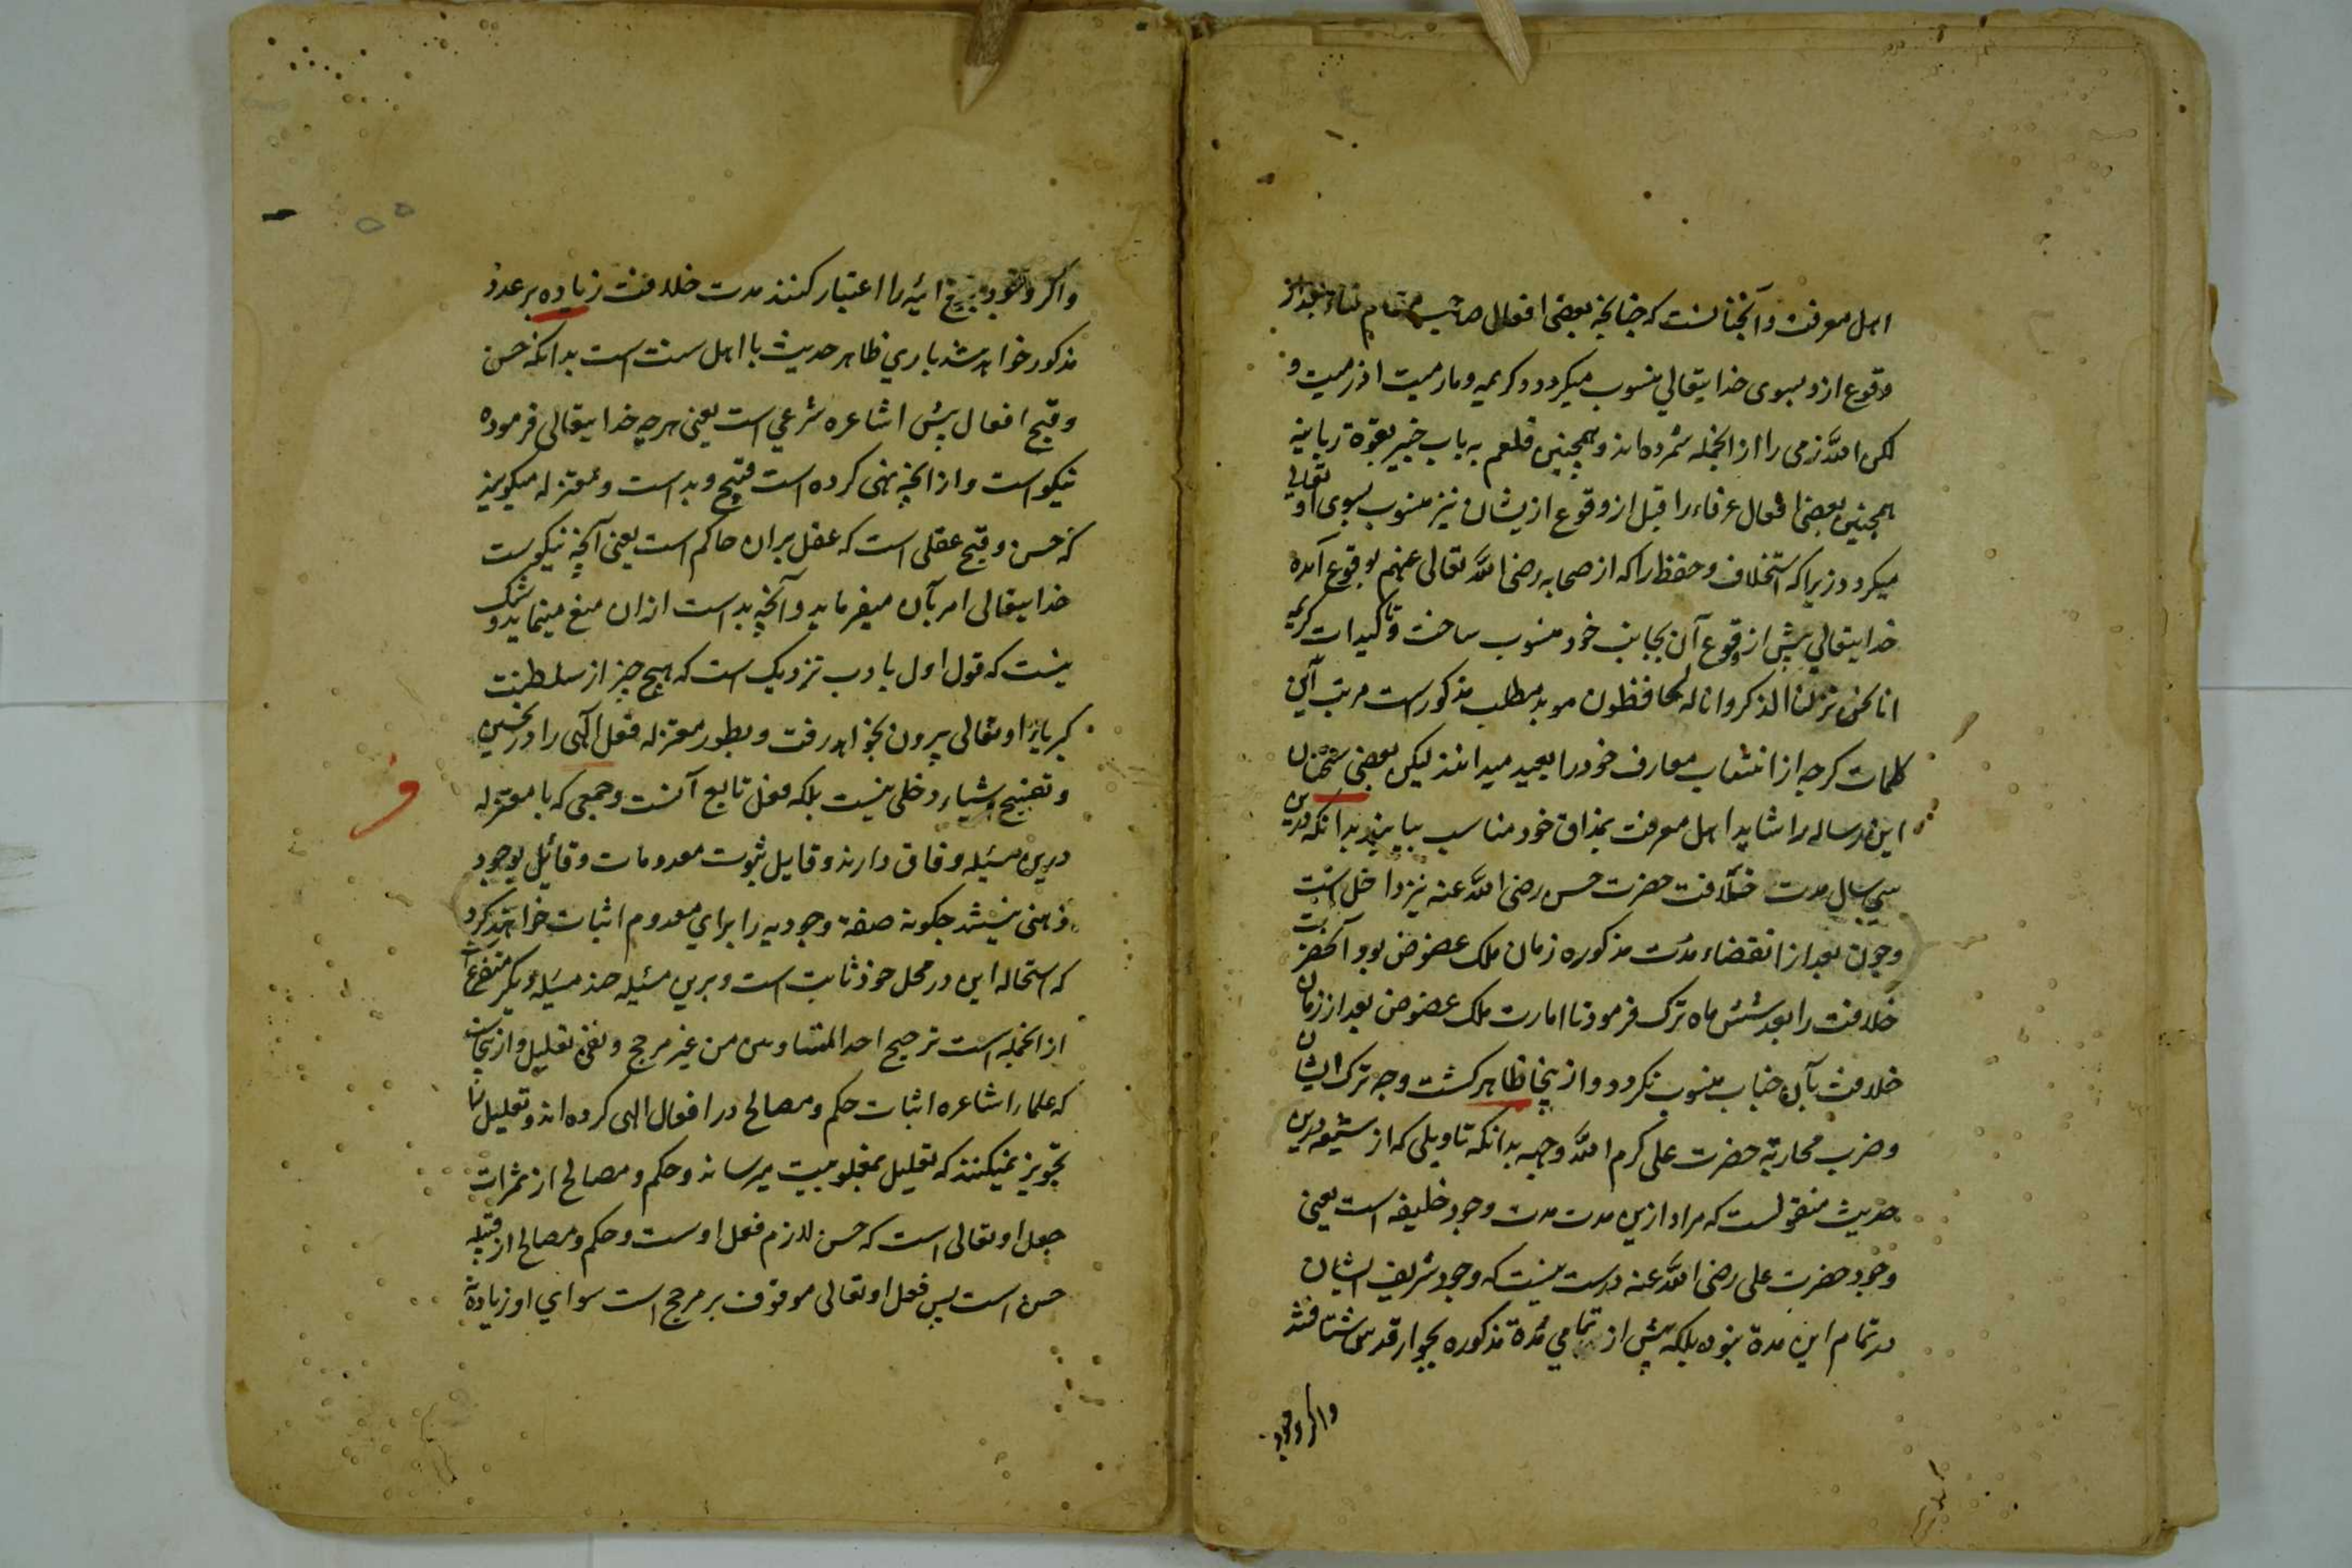 اهل معرفت و آنچنانست که چنانچه بعضی افعال صاحب مقام فناء بعد از
وقوع ازو بسوی خدایتعالی منسوب میکردد و کریمه و ما رمیت اذ رمیت و
لکن الله رمی را از انجمله شمرده اند و همچنین قلعم به باب خیبر بقوة ربانیه
همچنین بعضی افعال عرفاء را قبل از وقوع ازیشان نیز منسوب بسوی او تعالی
میکردد زیرا که استخلاف و حفظ را که از صحابه رضی الله تعالی عنهم بوقوع آمده
خدایتعالی پیش از وقوع آن بجانب خود منسوب ساخت و تاکیدات کریمه
انا نحن نزلنا الذکر و انا له لحافظون موید مطلب مذکورست مرتب این
کلمات کرچه از انتساب معارف خود را بعید میدانند لیکن بعضی سخنان
این رساله را شاید اهل معرفت بمذاق خود مناسب بیابند بدانکه درین
سی سال مدت خلافت حضرت حسن رضی الله عنه نیز داخل است
و چون بعد از انقضاء مدت مذکوره زمان ملک عضوض بود آنحضرت
خلافت را بعد شش ماه ترک فرمود تا امارت ملک عضوض بعد از زمان
خلافت بآن جناب منسوب نکردد و از ینجا ظاهر کشت وجه ترک ایشان
و ضرب محاربة حضرت علی کرم الله وجهه بدانکه تاویلی که از شیعه درین
حدیث منقولست که مراد ازین مدت مدت وجود خلیفه است یعنی
وجود حضرت علی رضی الله عنه درست نیست که وجود شریف ایشان
در تمام این مدة نبود بلکه پیش از تمامی مدة مذکوره بجوار قدس شتافتند
واکر وجود
واکر وجود پنج ائمه را اعتبار کنند مدت خلافت زیاده بر عدد
مذکور خواهد شد باری ظاهر حدیث با اهل سنت است بدانکه حسن
و قبح افعال پیش اشاعره شرعی است یعنی هرچه خدایتعالی فرموده
نیکو است و از انچه نهی کرده است قبیح و بد است و معتزله میکویند
که حسن و قبح عقلی است که عقل بران حاکم است یعنی آنچه نیکوست
خدایتعالی امر بآن میفرماید و آنچه بد است ازان منع مینماید و شک
نیست که قول اول بادب نزدیک است که هیچ چیز از سلطنت
کبریای او تعالی بیرون نخواهد رفت و بطور معتزله فعل الهی را در تحسین
و تقبیح اشیاء دخلی نیست بلکه فعل تابع آنست و جمعی که با معتزله
درین مسئله وفاق دارند و قایل ثبوت معدومات و قائل بوجود
ذهنی نیستند چکونه صفة وجودیه را برای معدوم اثبات خواهند کرد
که استحاله این در محل خود ثابت است و برین مسئله چند مسئله دیکر متفرع است
از انجمله است ترجیح احد المتساویین من غیر مرجح و نفی تعلیل و ازینجاست
که علماء اشاعره اثبات حکم و مصالح در افعال الهی کرده اند و تعلیل را
تجویز نمیکنند که تعلیل بمغلوبیت میرساند و حکم و مصالح از ثمرات
جعل او تعالی است که حسن لازم فعل اوست و حکم و مصالح از قبیله
حسن است پس فعل او تعالی موقوف بر مرجح است سوای اوز یادة
ف